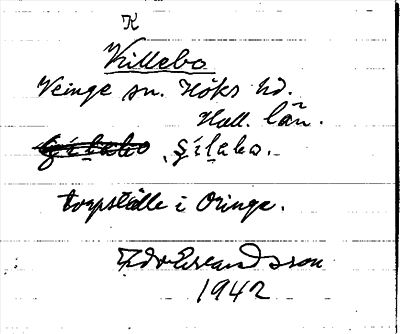 K
Killebo
Veinge sn. Höks hd.
Hall. län.
Gilabo, Gilabo.
torpställe i Öringe.
1942